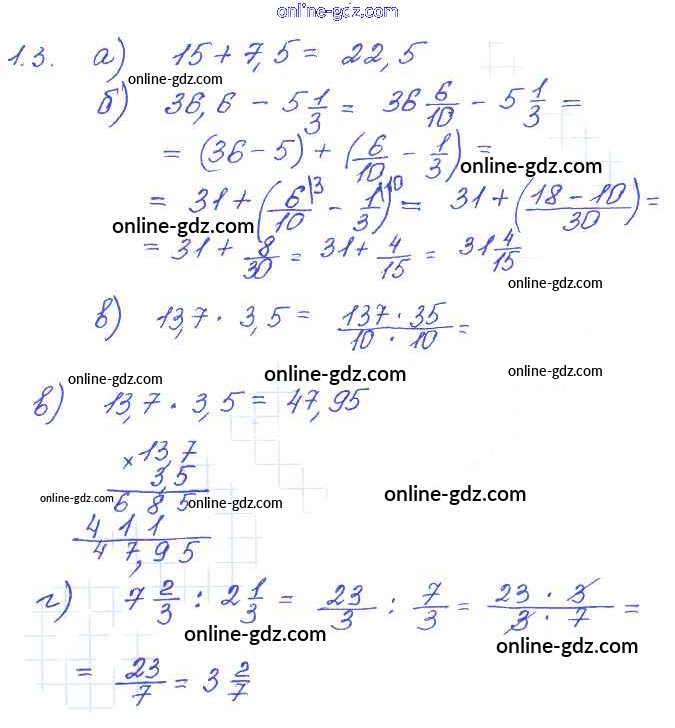 online-gdz.com
1.3. а) 15 + 7,5 = 22,5
online-gdz.com
б) 36,6 - 5 1/3 = 36 6/10 - 5 1/3 =
= (36 - 5) + (6/10 - 1/3) =
online-gdz.com
= 31 + (6/10 |3 - 1/3 |10) = 31 + (18 - 10/30) =
online-gdz.com
= 31 + 8/30 = 31 + 4/15 = 31 4/15
online-gdz.com
в) 13,7 · 3,5 = 137 · 35/10 · 10 =
online-gdz.com online-gdz.com
в) 13,7 · 3,5 = 47,95
online-gdz.com
× 13,7
3,5
online-gdz.com 6 8 5 online-gdz.com online-gdz.com
4 1 1
4 7,9 5
г) 7 2/3 : 2 1/3 = 23/3 : 7/3 = 23 · 3/3 · 7 =
online-gdz.com online-gdz.com
= 23/7 = 3 2/7
online-gdz.com